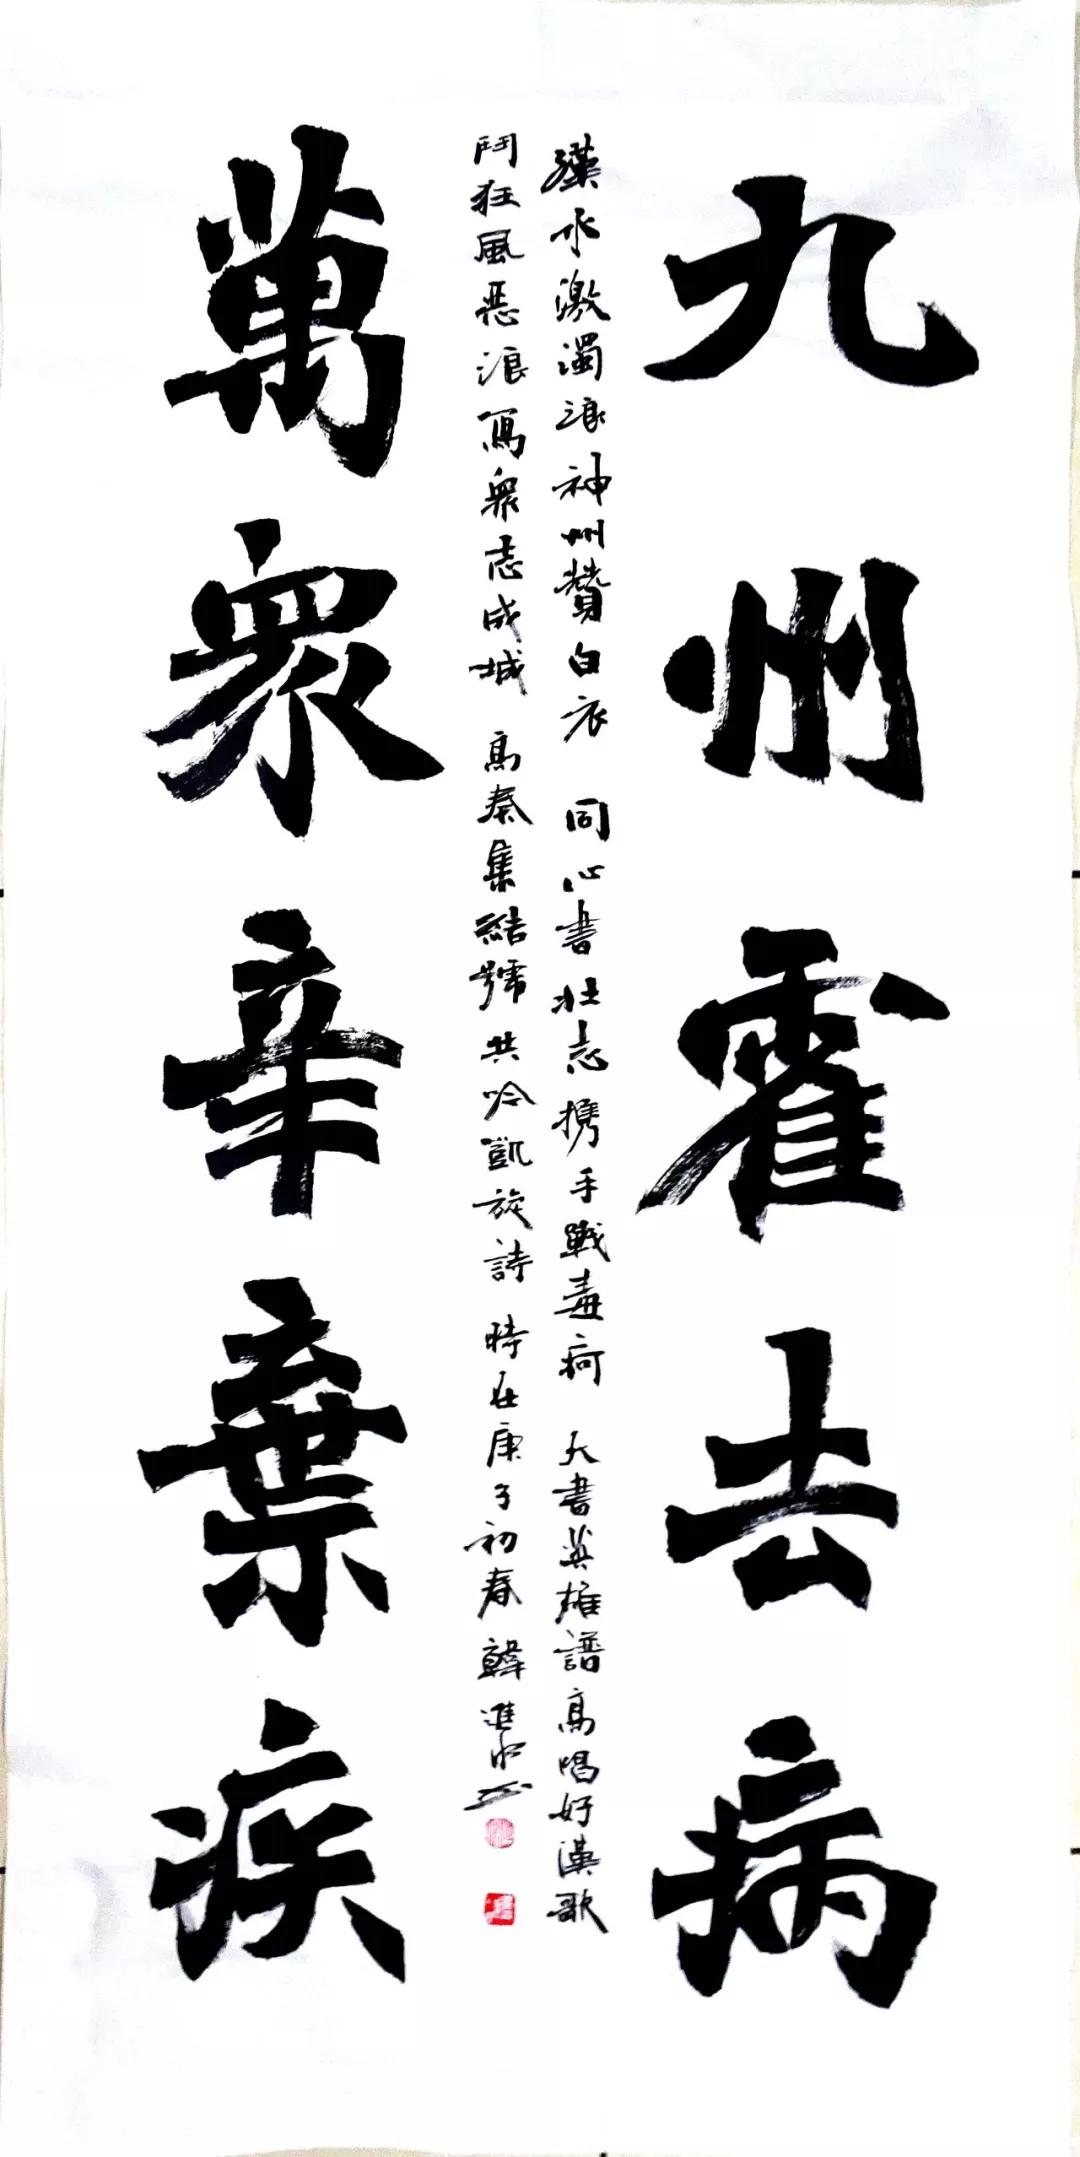 九州霍去病
漢水激濁浪神州贊白衣 同心書壯志携手戰毒疴 大書英雄譜高唱好漢歌
鬥狂風惡浪寫衆志成城 高奏集結號共吟凱旋詩 時在庚子初春 韓進水
萬衆辛棄疾